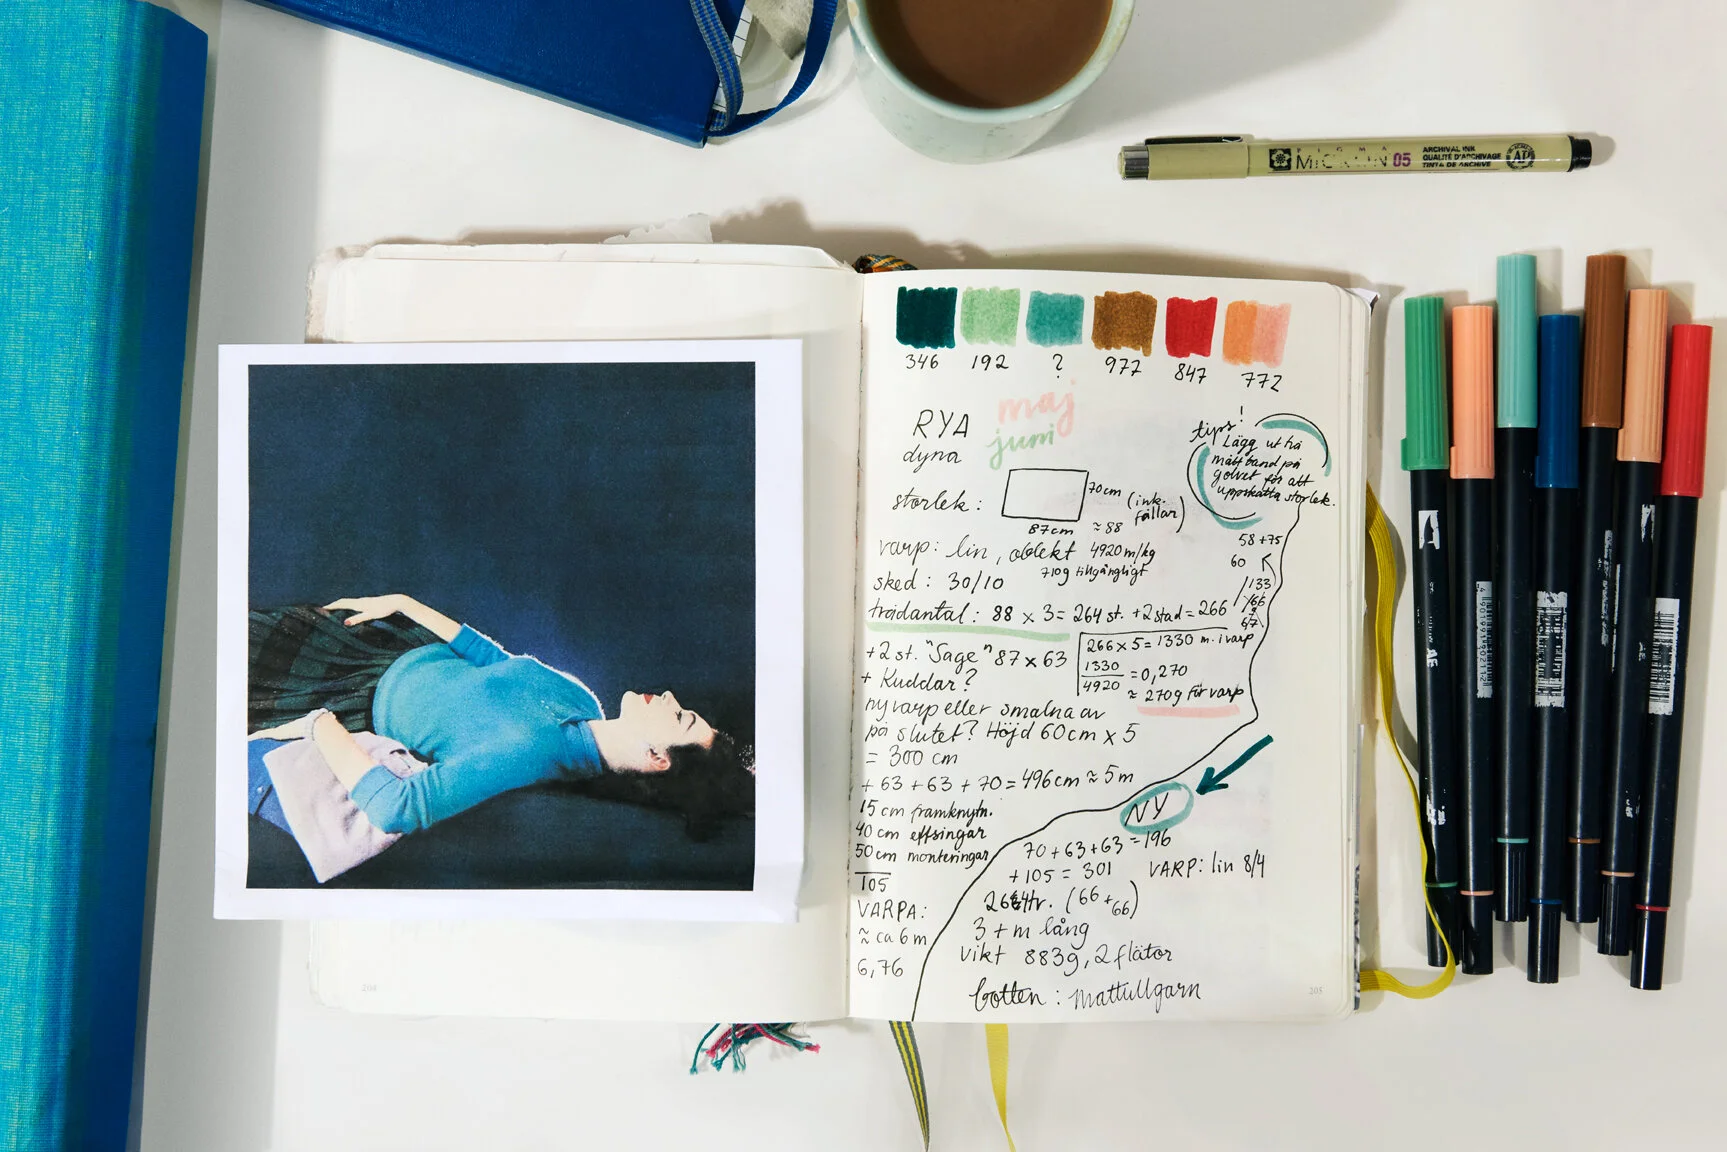 PIGMA
MICRON 05
ARCHIVAL INK
QUALITÉ D'ARCHIVAGE
TINTA DE ARCHIVE
AP
346 192 ? 977 847 772
maj
juni
RYA
dyna
tips!
Lägg ut två
måttband på
golvet för att
uppskatta storlek.
storlek:
70cm
(ink.
fållar)
87cm ≈ 88
varp: lin, oblekt 4920 m/kg
710g tillgängligt
sked: 30/10
trådantal: 88 x 3 = 264 st. + 2 stad = 266
58 + 75
60
/133
/66
67
+ 2 st. "Sage" 87 x 63
+ Kuddar?
ny varp eller smalna av
på slutet? Höjd 60cm x 5
= 300 cm
+ 63 + 63 + 70 = 496cm ≈ 5m
266 x 5 = 1330 m. i varp
1330
4920 = 0,270
≈ 270g för varp
15 cm framknytn.
40 cm effsingar
50 cm monteringar
105
VARPA:
≈ ca 6 m
6,76
NY
70 + 63 + 63 = 196
+ 105 = 301
VARP: lin 8/4
(66 + 66)
3 + m lång
vikt 883g, 2 flätor
botten: mattullgarn
204
205